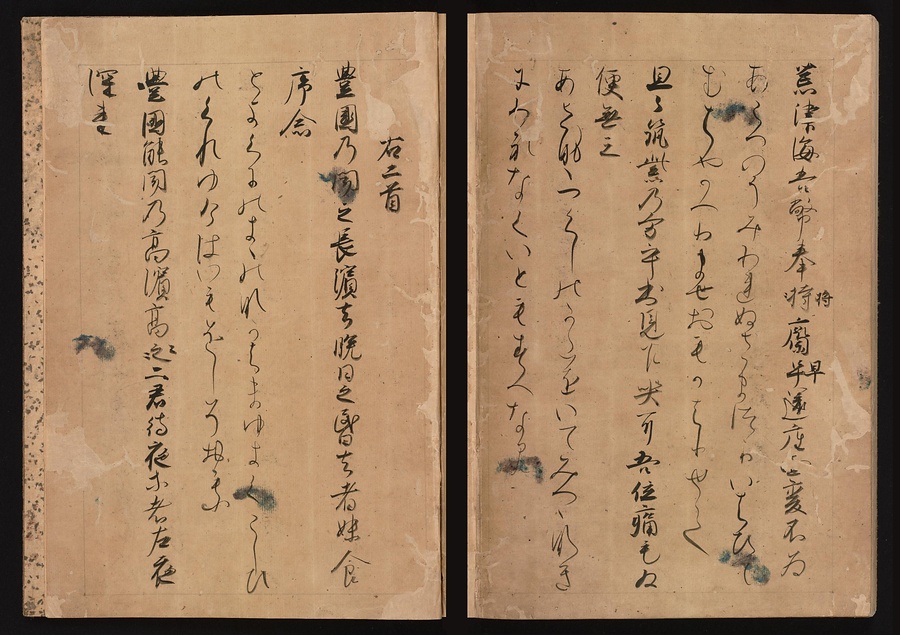 荒津海吾幣奉将齋早還座面變不為
あらつのうみわれぬさまつりいはひて
むはやかへりませおもかはりせて
旦〻筑紫乃方乎出見乍哭耳吾位痛毛為
便無三
つくしのかたをいてみつゝなき
にわれなくいともすへなみ
右二首
豊國乃聞之長濱去晩日之昏去者妹食
序念
とよくにのきくのなかはまゆきくらしひ
のくれゆけはいもをしそおもふ
豊國能聞乃高濱高〻二君待夜等者左夜
深来